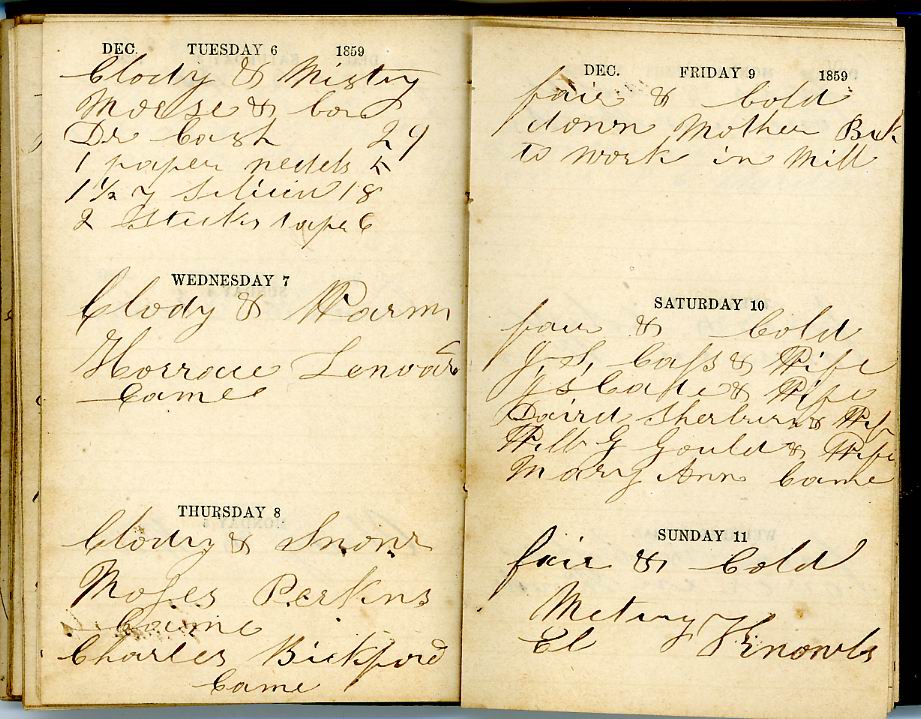 DEC. TUESDAY 6 1859
Clody & Misty
Morse & Co
Dr Cash 29
1 paper nedels 5
1 1/2 y Silicia 18
2 Sticks tape 6
WEDNESDAY 7
Clody & Warm
Horrace Lenvar
Came
THURSDAY 8
Clody & Snow
Moses Perkins
Came
Charles Bickford
Came
DEC. FRIDAY 9 1859
fair & Cold
down Mother Bick
to work in Mill
SATURDAY 10
fair & Cold
J. S. Cass & Wife
J S Cate & Wife
David Sherburn & Wife
Will G Gould & Wife
Mary Ann Came
SUNDAY 11
fair & Cold
Meting
El Knowls